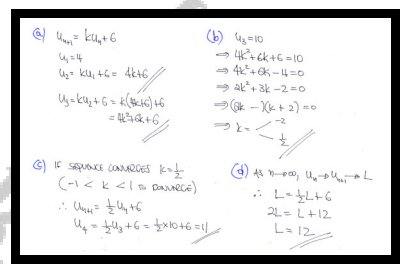 (a) Uₙ₊₁ = kUₙ + 6
U₁ = 4
U₂ = kU₁ + 6 = 4k+6
U₃ = kU₂ + 6 = k(4k+6)+6
= 4k²+6k+6
(b) U₃ = 10
⇒ 4k²+6k+6 = 10
⇒ 4k²+6k-4=0
⇒ 2k²+3k-2=0
⇒ (2k-1)(k+2)=0
⇒ k = -2
1/2
(c) IF SEQUENCE CONVERGES k=1/2
(-1 < k < 1 TO CONVERGE)
∴ Uₙ₊₁ = 1/2 Uₙ + 6
U₄ = 1/2 U₃ + 6 = 1/2 × 10 + 6 = 11
(d) AS n→∞, Uₙ → Uₙ₊₁ → L
∴ L = 1/2 L + 6
2L = L + 12
L = 12